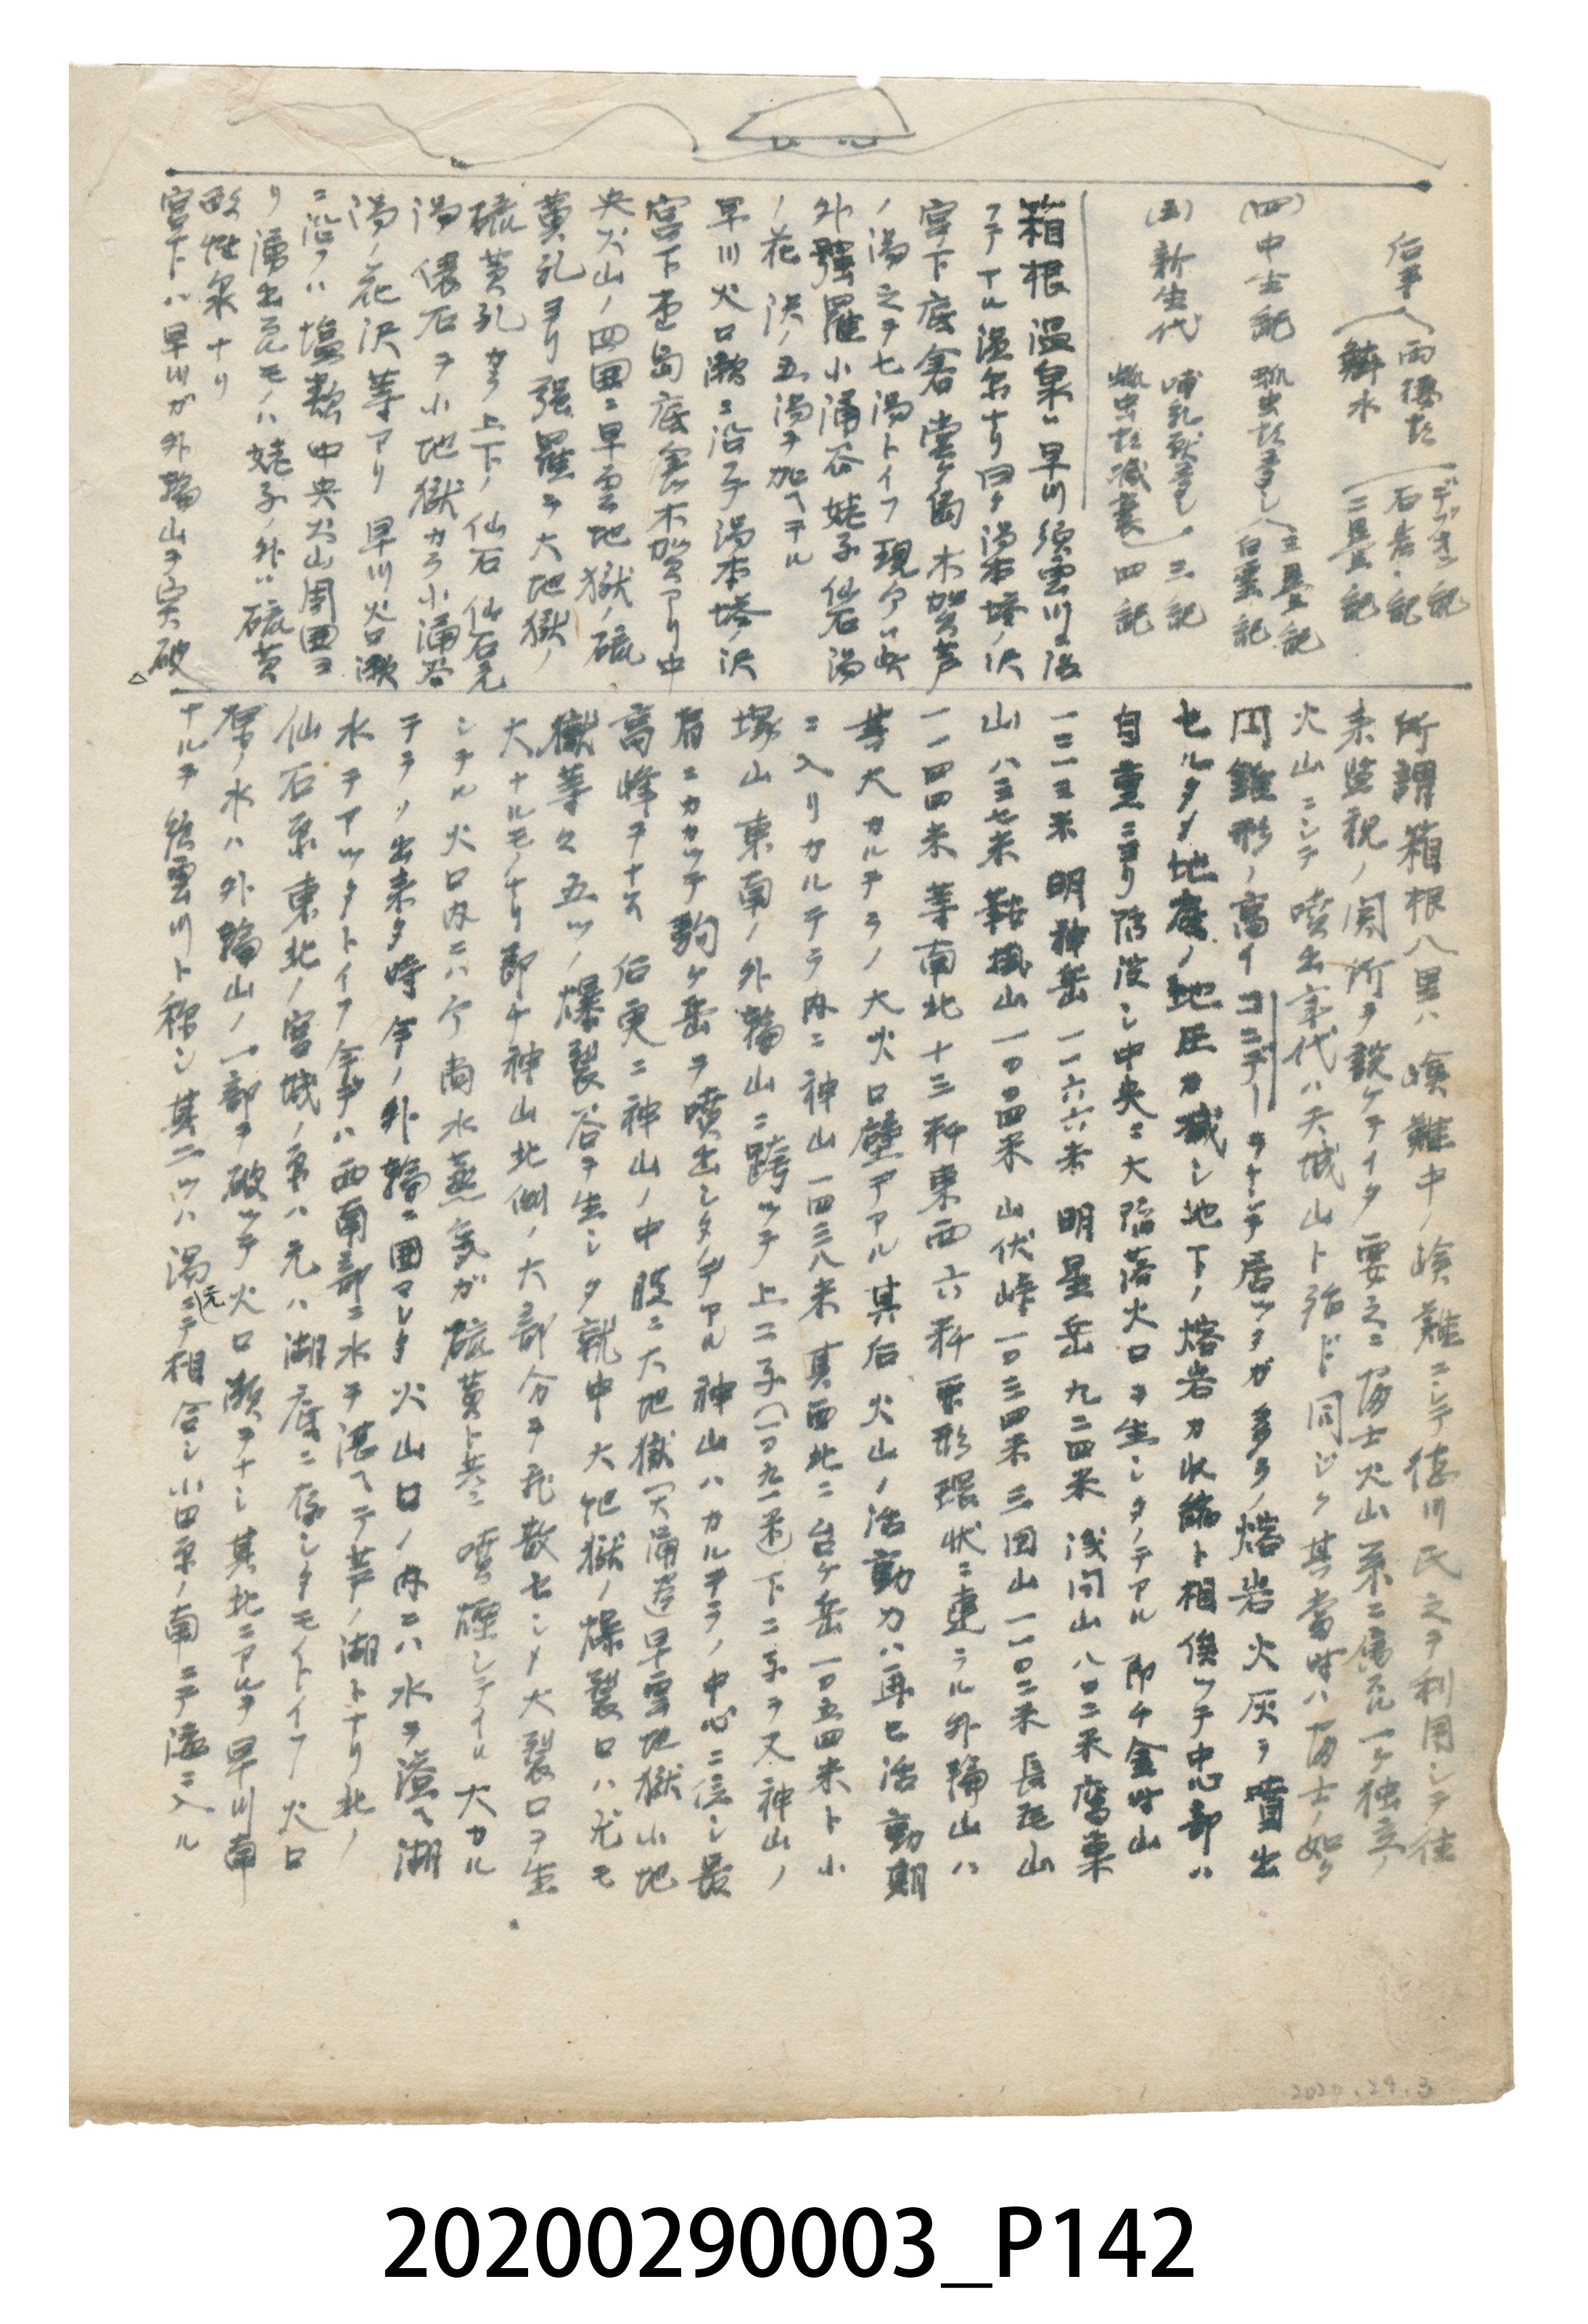 デボン記
両棲類 石炭記
后事 鱗木 二畳記
三畳記
(四)中古記 爬虫類多シ 白亜記
(五)新生代 哺乳獣多シ 三記
爬虫類減衰 四記
箱根温泉ハ早川須雲川ニ沿
フテイル温泉ナリ曰ク湯本塔ノ沢
宮下底倉堂ヶ島木賀芦
ノ湯之ヲ七湯トイフ 現今ハ此
外強羅小涌谷姥子仙石湯
ノ花沢ノ五湯ヲ加ヘテル
早川火口瀬ニ沿フテ湯本塔ノ沢
宮下堂ヶ島底倉木賀アリ中
央火山ノ四囲ニ早雲地獄ノ硫
黄孔ヨリ強羅ヲ大地獄ノ
硫黄孔カラ上下ノ仙石仙石元
湯俵石ヲ小地獄カラ小涌谷
湯ノ花沢等アリ 早川火口瀬
ニ沿フハ塩類中央火山周囲ヨ
リ湧出スルモノハ姥子ノ外ハ硫黄
酸性泉ナリ
宮下ハ早川ガ外輪山ヲ突破
所謂箱根八里ハ嶮難中ノ嶮難ニシテ徳川氏之ヲ利用シテ往
来監視ノ関所ヲ設ケテイタ 要之ニ富士火山系ニ属スル一ケ独立ノ
火山ニシテ噴出年代ハ天城山ト殆ド同ジク其当時ハ富士ノ如ク
円錐形ノ高イコニーデーヲナシテ居ッタガ多クノ熔岩火灰ヲ噴出
セルタメ地底ノ地圧カ減シ地下ノ熔岩カ収縮ト相俟ッテ中心部ハ
自重ニヨリ陥没シ中央ニ大陥落火口ヲ生シタノテアル 即チ金時山
一二一三米 明神岳一一六六米 明星岳九二四米 浅間山八〇二米 鷹巣
山八三七米 鞍掛山一〇〇四米 山伏峠一〇三四米 三国山一一〇二米 長尾山
一一四四米等南北十三粁東西六粁栗形環状ニ連ラル外輪山ハ
其大カルデラノ大火口壁デアル 其后火山ノ活動力ハ再ヒ活動期
ニ入リカルデラ内ニ神山一四三八米 真西北ニ台ヶ岳一〇五四米ト小
塚山 東南ノ外輪山ニ跨ッテ上二子(一〇九一米)下二子ヲ又神山ノ
肩ニカカッテ駒ヶ岳ヲ噴出シタノデアル 神山ハカルデラノ中心ニ位シ最
高峰ヲナス 后更ニ神山ノ中腹ニ大地獄(大涌谷)早雲地獄小地
獄等ノ五ツノ爆裂谷ヲ生シタ就中大地獄ノ爆裂口ハ尤モ
大ナルモノナリ即チ神山北側ノ大部分ヲ飛散セシメ大裂口ヲ生
シテル 火口内ニハ今尚水蒸気ガ硫黄ト共ニ噴煙シテイル 大カル
デラノ出来タ時 今ノ外輪ニ囲マレタ火山口ノ内ニハ水ヲ溢ヘ湖
水デアッタトイフ 今デハ西南部ニ水ヲ湛ヘテ芦ノ湖トナリ北ノ
仙石原東北ノ宮城ノ原ハ元ハ湖底ニ存シタモノトイフ 火口
原ノ水ハ外輪山ノ一部ヲ破ッテ火口瀬ヲナシ其北ニアルヲ早川南
ナルヲ須雲川ト称シ其二ツハ湯元ニテ相合シ小田原ノ南ニテ海ニ入ル
20200290003_P142